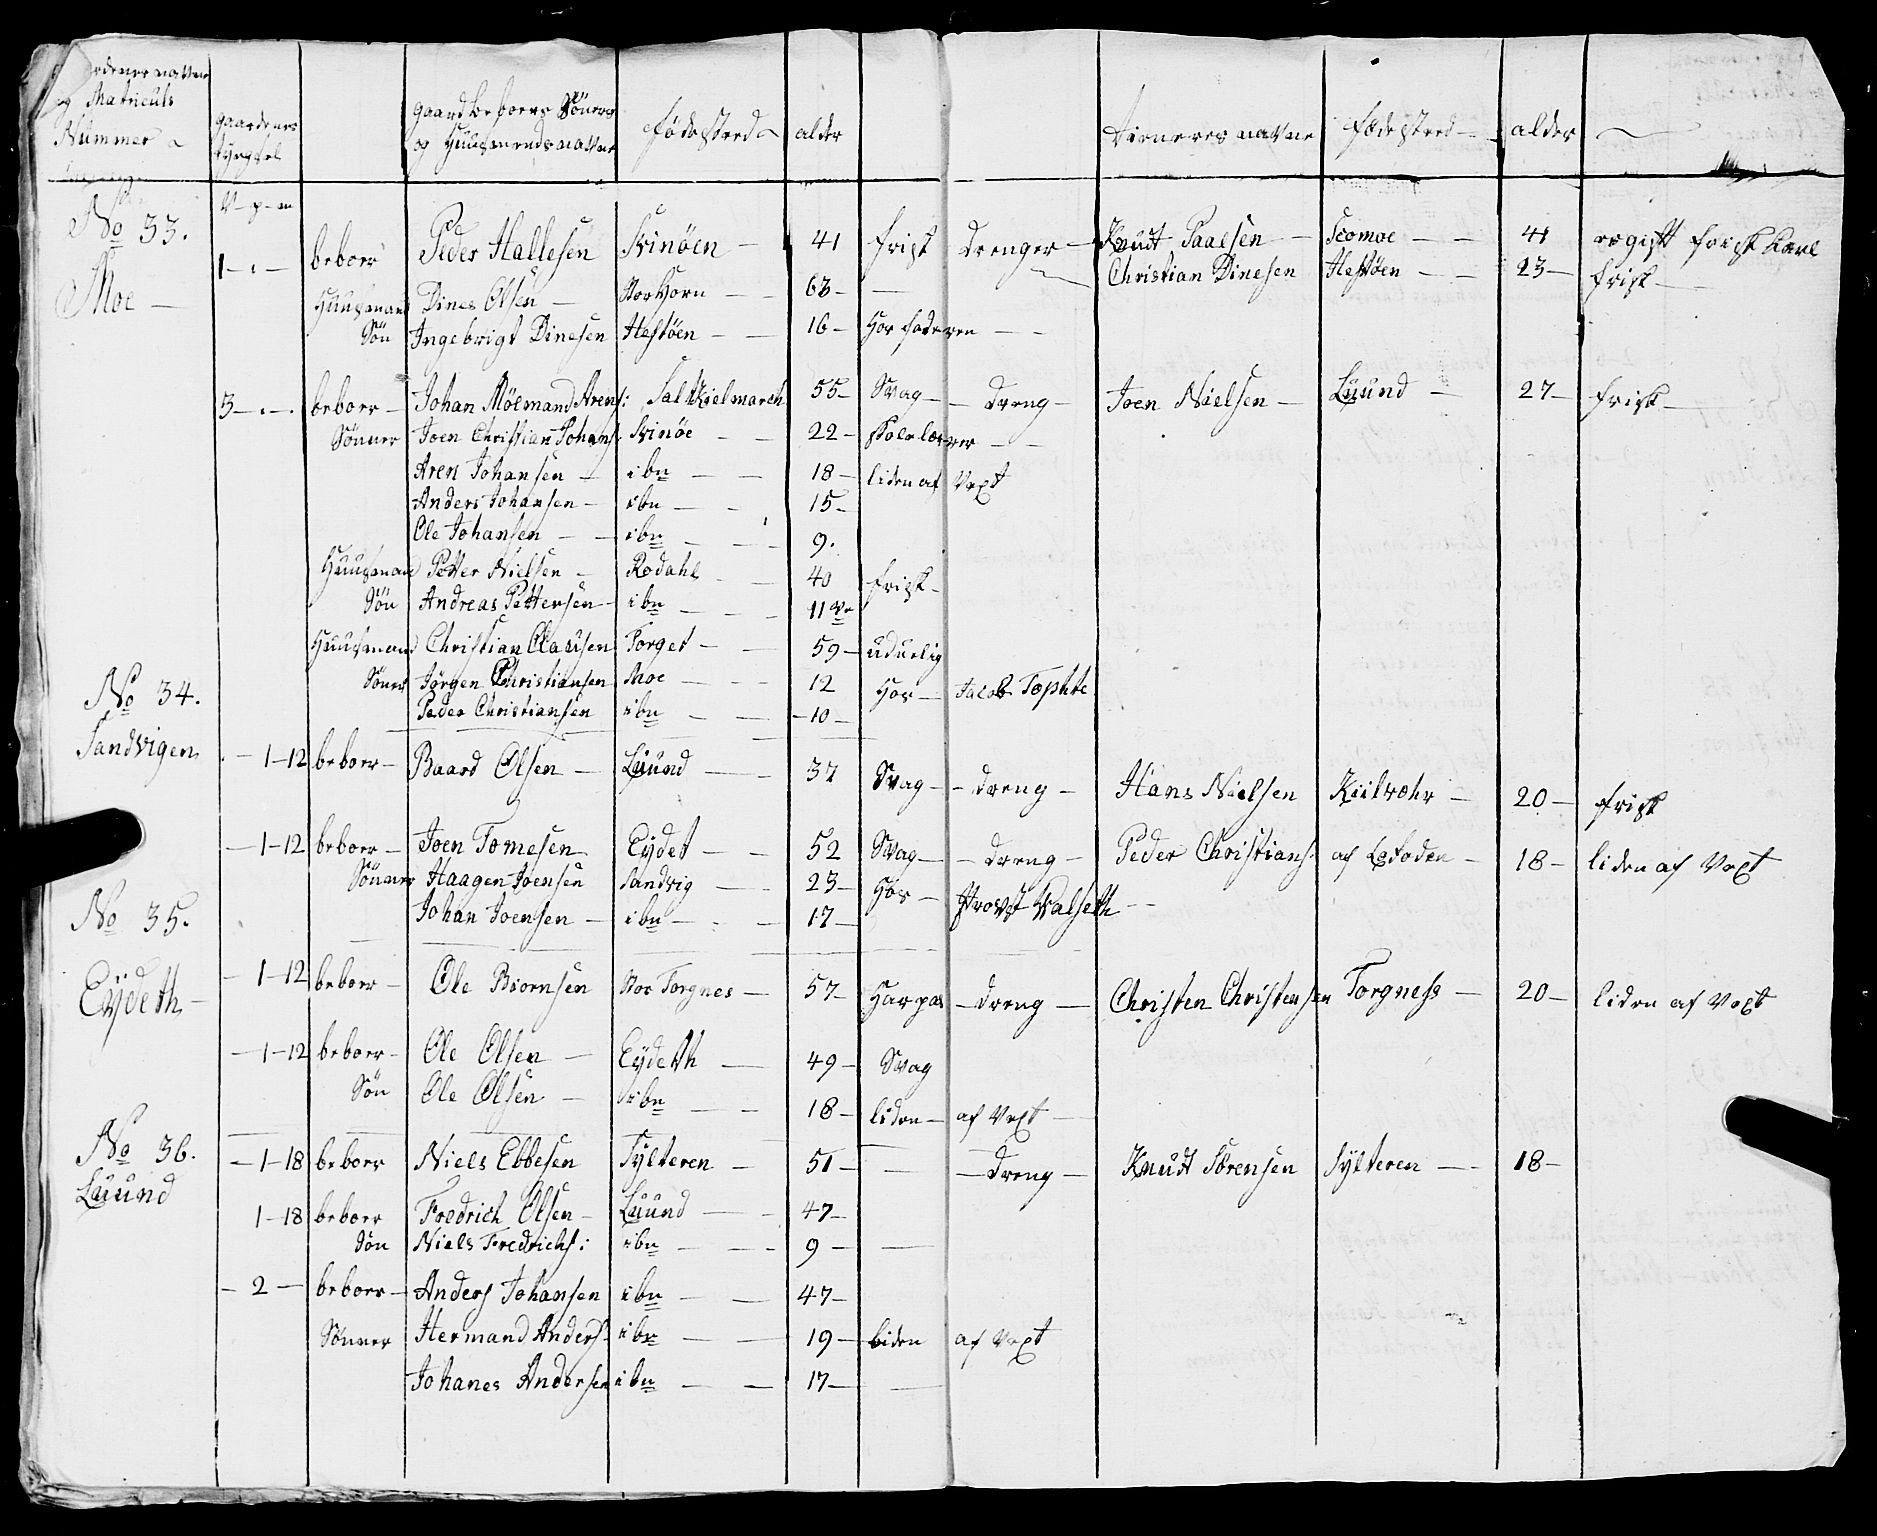 og Matriculs
Nummer
gaardenes
gaard beboers Sönners
og Huusmends nafne
födested
alder
tieneres nafne
födested
alder
V - p - m
No 33. Moe
1 - . - beboer Peder Hallesen Svinöen 41 frisk drenger Knudt Paalsen 41 frisk karl
Christian Dinesen Hestöen 23 frisk
Huusmand Dines Olsen Storhorn 63
Sön Ingebrigt Dinesen Hestöen 16 Hos faderen
3 - . - beboer Johan Möemand Arens: 55 Svag dreng Joen Nielsen Luund 27 frisk
Sönner Joen Christian Johans: Svinöe 22 skolelærer
Aren Johansen ibn 18 liden af Vext
Anders Johansen ibn 15
Ole Johansen ibn 9.
Huusmand Petter Nielsen Rodahl 40 frisk
Sön Andreas Pettersen ibn 11
Huusmand Christian Clausen Torget 59 uduelig
Söner Jörgen Christiansen Moe 12 Hos Jacob
Peder Christiansen ibn 10
No 34. Sandvigen
1-12 beboer Baard Olsen Luund 37 Svag dreng Hans Nielsen 20 frisk
1-12 beboer Joen Tomesen Eydet 52 Svag dreng Peder Christians: af 18 liden af Vext
Sönner Haagen Joensen Sandvig 23 Hos Provst
Johan Joensen ibn 17
No 35. Eÿdeth
1-12 beboer Ole Biornsen Stor Torgnes 57 dreng Christen Christensen Torgness 20 liden af Vext
1-12 beboer Ole Olsen Eÿdeth 49 Svag
Sön Ole Olsen ibn 18 liden af Vext
No 36. Luund
1-18 beboer Niels Ebbesen Sÿlteren 51 dreng Knudt Sörensen Sÿlteren 18
1-18 beboer Fredrich Olsen Luund 47
Sön Niels Fredrichs: ibn 9
2 beboer Anders Johansen ibn 47
Sönner Hermand Anders: ibn 19 liden af Vext
Johanes Andersen ibn 17